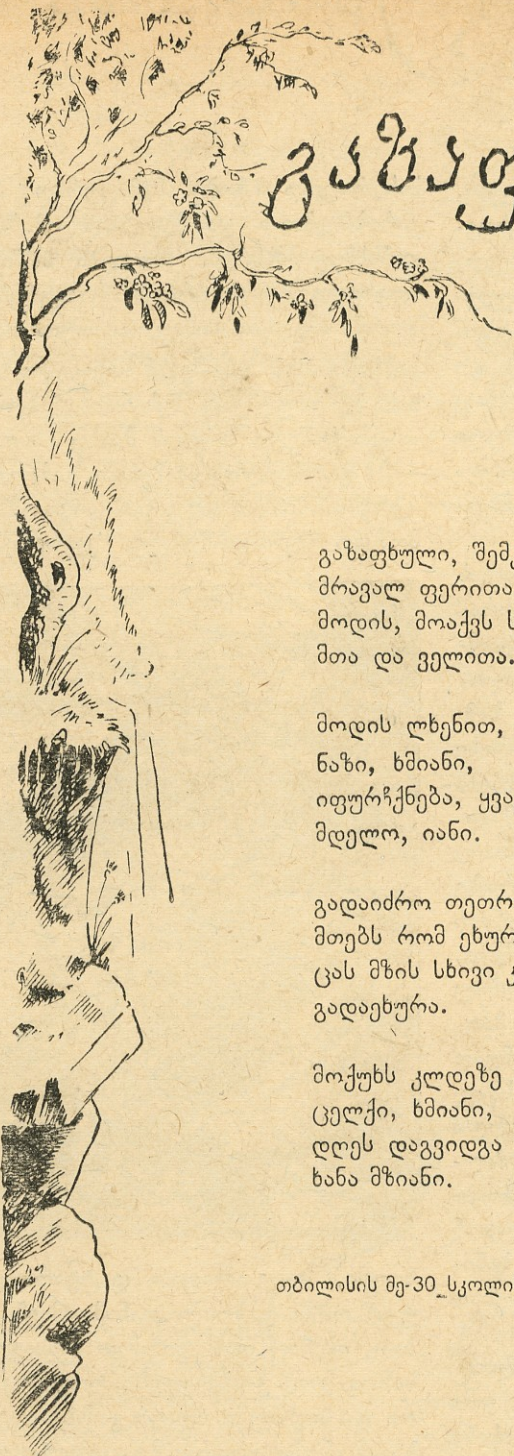 გაზაფ
გაზაფხული,
მრავალ ფერითა
მოდის, მოაქვს
მთა და ველითა.
მოდის ლხენით,
ნაზი, ხმიანი,
იფურჩქნება,
მდელო, იანი.
გადაიძრო
მთებს რომ
ცას მზის სხივი
გადაეხურა.
მოქუხს კლდეზე
ცელქი, ხმიანი,
დღეს დაგვიდგა
ხანა მზიანი.
თბილისის მე-30